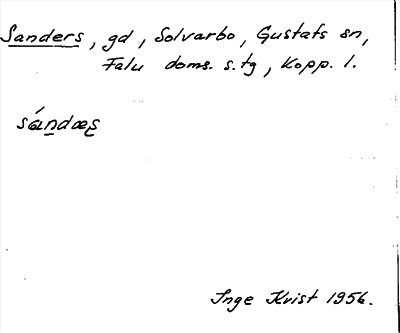 Sanders, gd, Solvarbo, Gustafs sn,
Falu doms. s.tg, Kopp. l.
sánda𝑒s
Inge Kvist 1956.